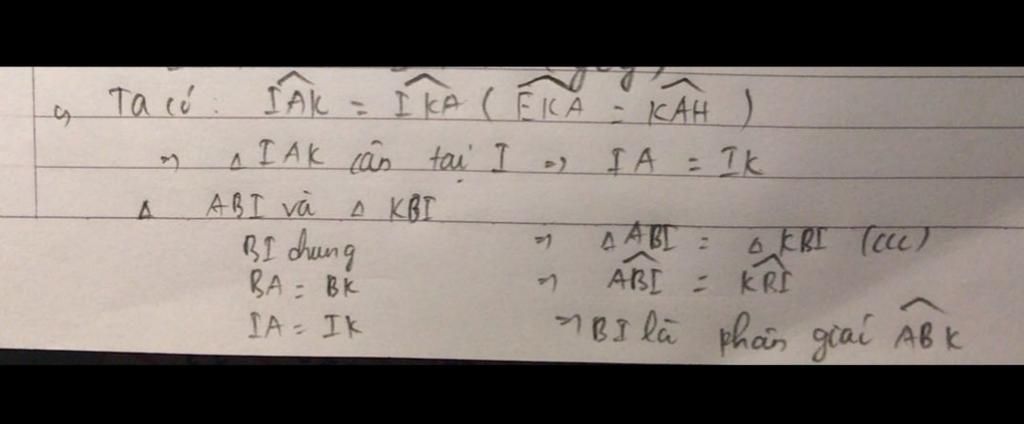 c, Ta có: IAK = IKA (EKA = KAH)
=> △ IAK cân tại I => IA = IK
△ ABI và △ KBI
BI chung => △ ABI = △ KBI (ccc)
BA = BK => ABI = KBI
IA = IK => BI là phân giác ABK